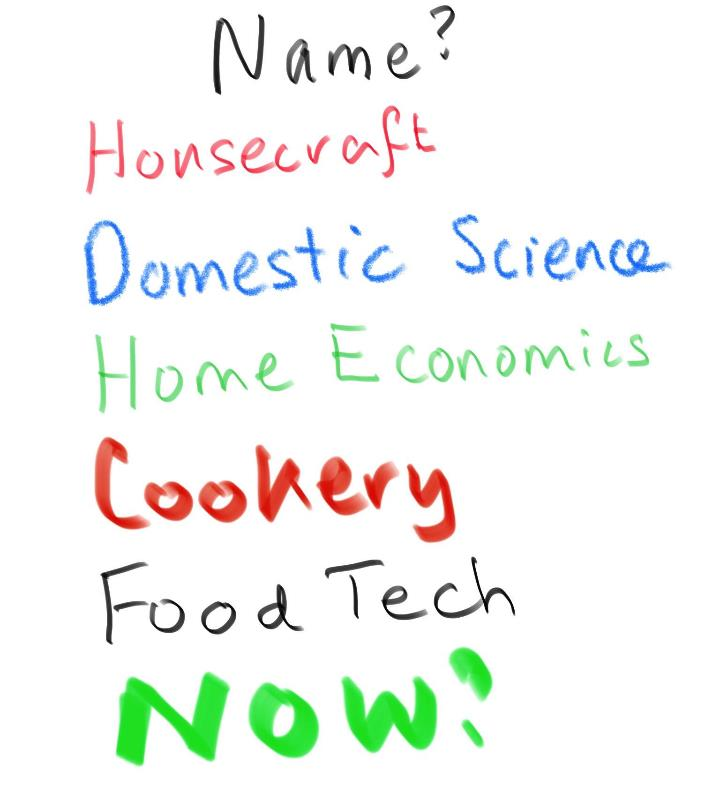 Name?
Housecraft
Domestic Science
Home Economics
Cookery
Food Tech
NOW?